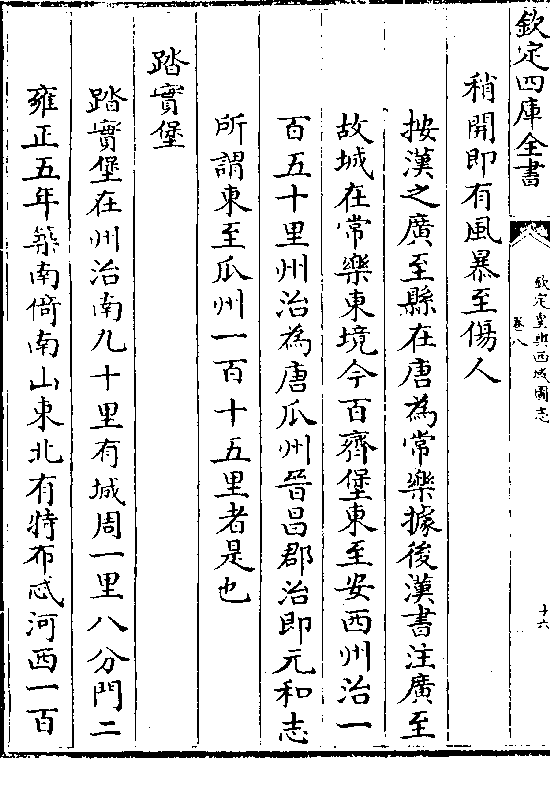 欽定四庫全書
欽定皇輿西域圖志
卷八
十六
稍開即有風暴至傷人
按漢之廣至縣在唐為常樂據後漢書注廣至
故城在常樂東境今百齊堡東至安西州治一
百五十里州治為唐瓜州晉昌郡治即元和志
所謂東至瓜州一百十五里者是也
踏實堡
踏實堡在州治南九十里有城周一里八分門二
雍正五年築南倚南山東北有特布忒河西一百